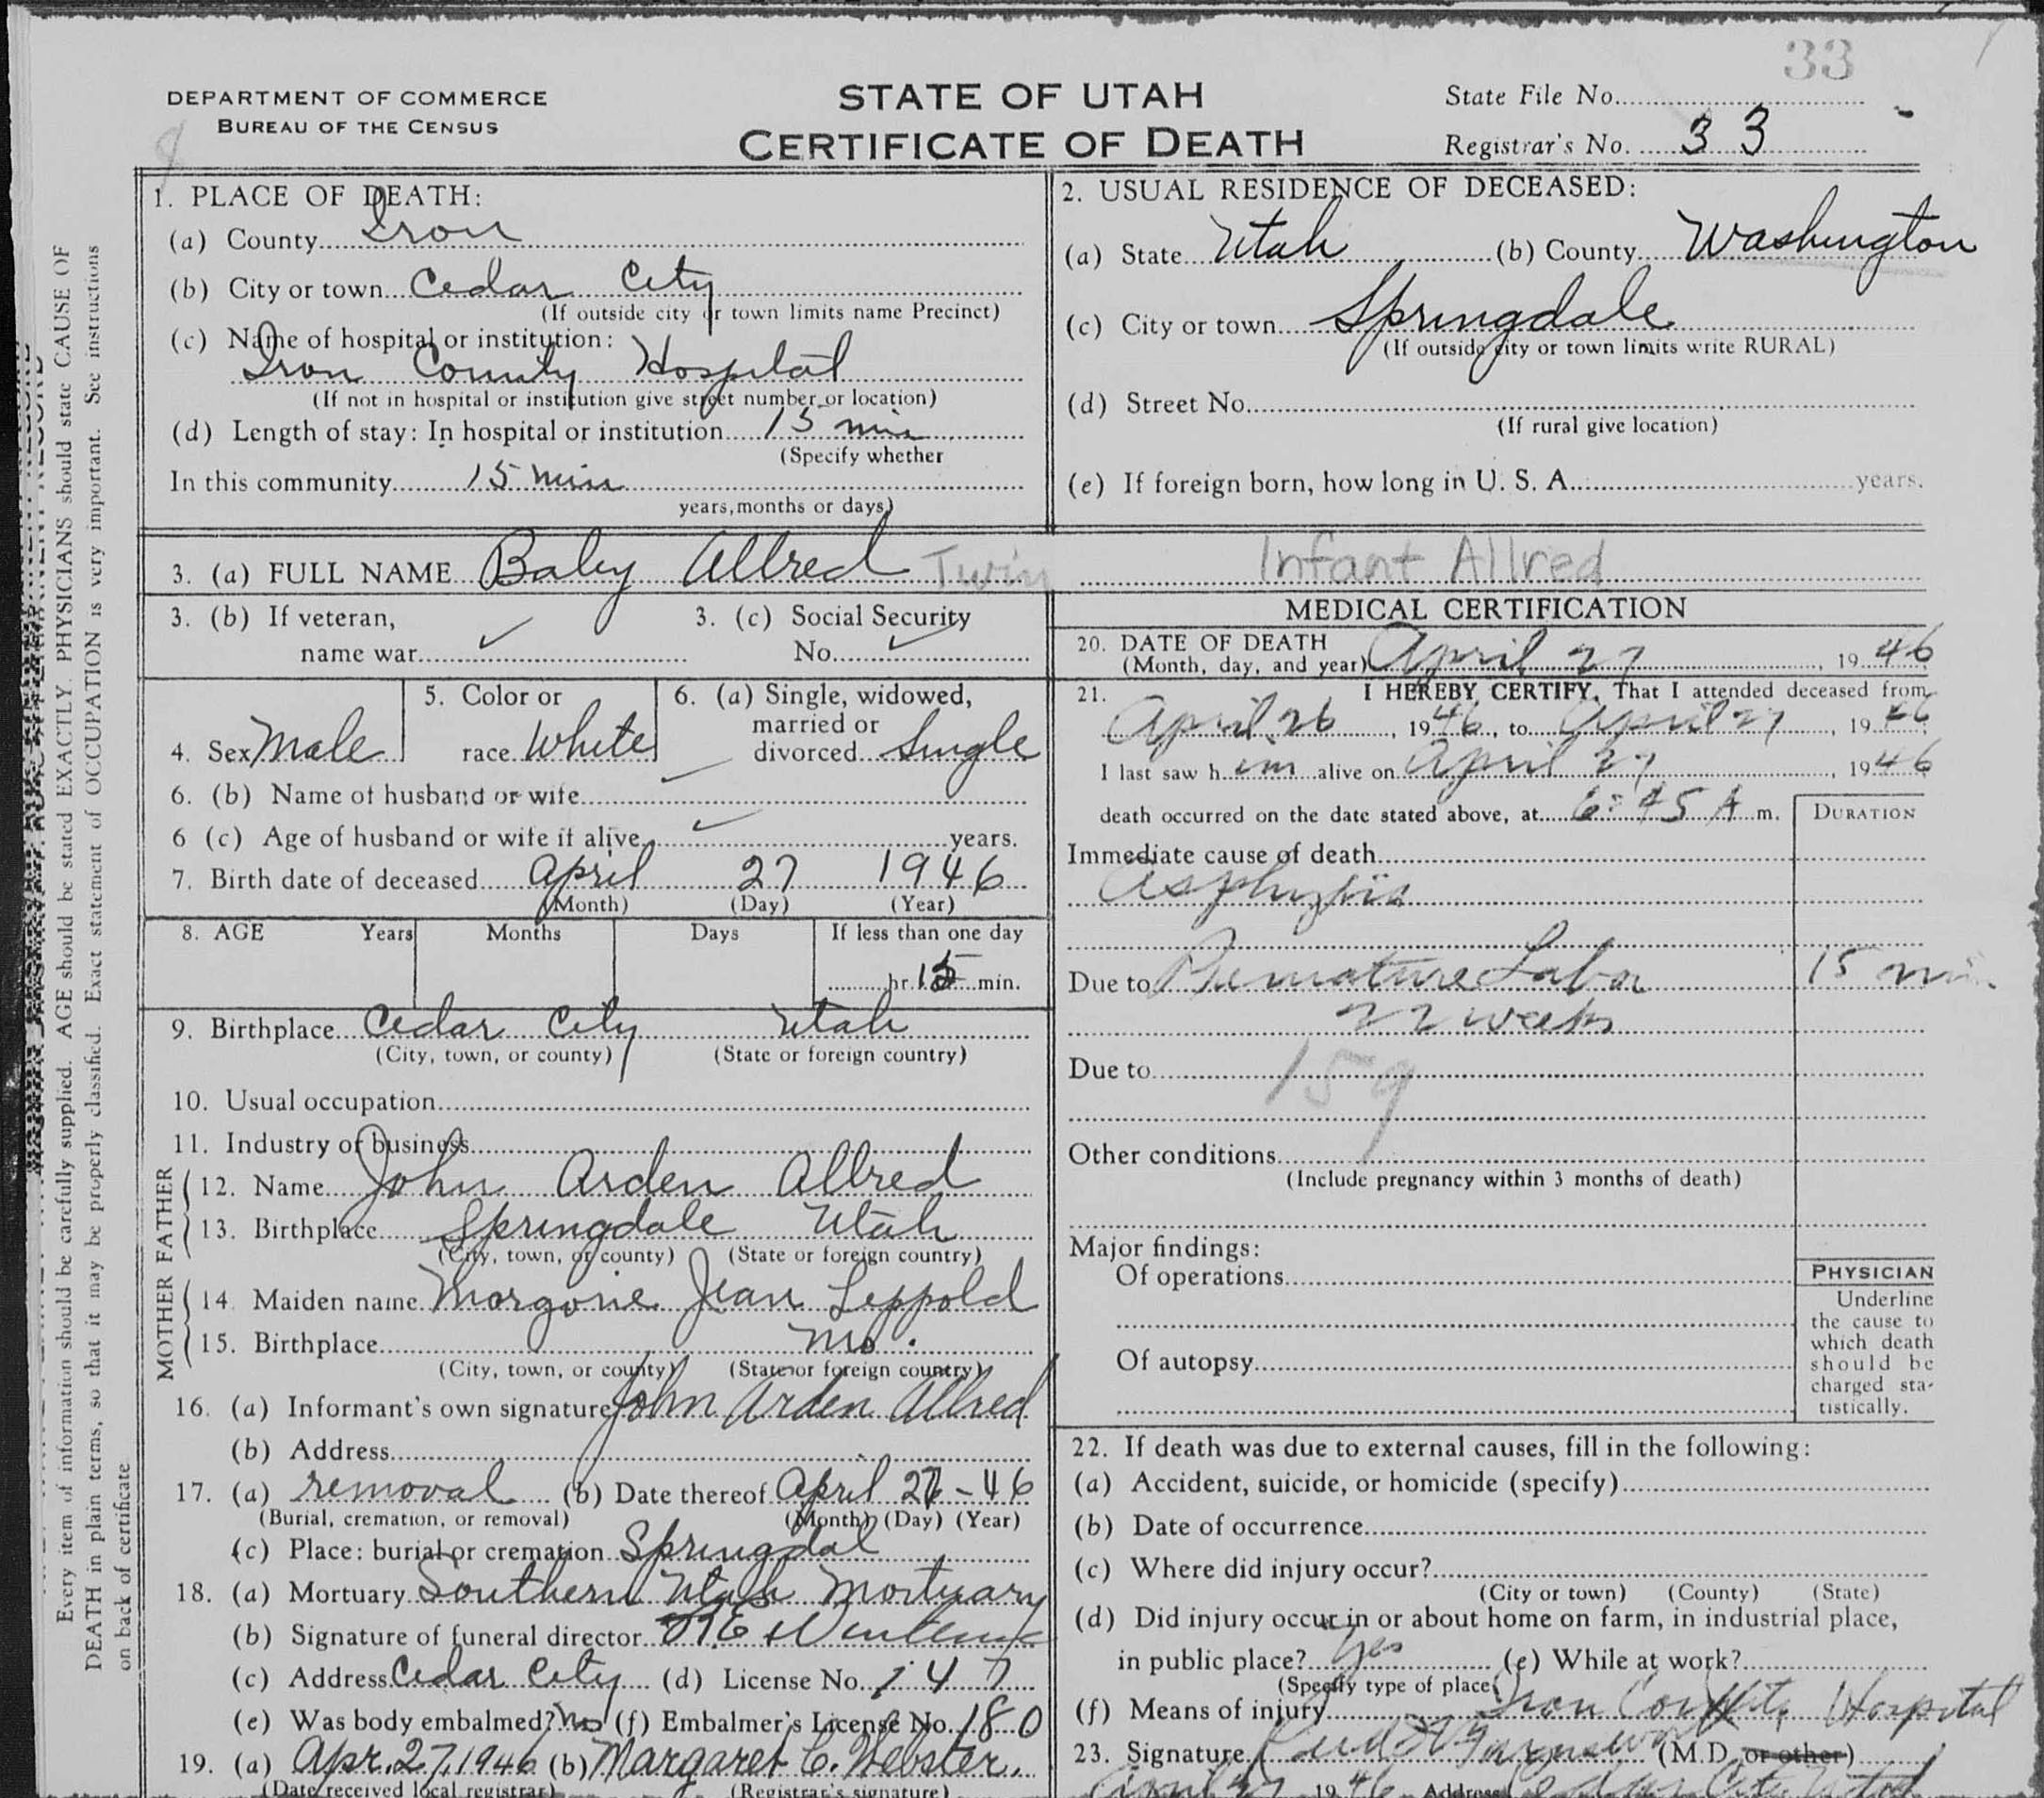 33
DEPARTMENT OF COMMERCE
BUREAU OF THE CENSUS
STATE OF UTAH
CERTIFICATE OF DEATH
State File No.
Registrar's No. 33
Every item of information should be carefully supplied. AGE should be stated EXACTLY. PHYSICIANS should state CAUSE OF
DEATH in plain terms, so that it may be properly classified. Exact statement of OCCUPATION is very important. See instructions
on back of certificate
1. PLACE OF DEATH:
(a) County Iron
(b) City or town Cedar City
(If outside city or town limits name Precinct)
(c) Name of hospital or institution:
Iron County Hospital
(If not in hospital or institution give street number or location)
(d) Length of stay: In hospital or institution 15 min
(Specify whether
In this community 15 min
years, months or days)
2. USUAL RESIDENCE OF DECEASED:
(a) State Utah (b) County Washington
(c) City or town Springdale
(If outside city or town limits write RURAL)
(d) Street No.
(If rural give location)
(e) If foreign born, how long in U. S. A. years.
3. (a) FULL NAME Baby Allred Twin Infant Allred
3. (b) If veteran,
name war
3. (c) Social Security
No.
4. Sex Male
5. Color or
race White
6. (a) Single, widowed,
married or
divorced Single
6. (b) Name of husband or wife
6 (c) Age of husband or wife if alive years.
7. Birth date of deceased April 27 1946
(Month) (Day) (Year)
8. AGE Years Months Days If less than one day
hr. 15 min.
9. Birthplace Cedar City Utah
(City, town, or county) (State or foreign country)
10. Usual occupation
11. Industry or business
FATHER
12. Name John Arden Allred
13. Birthplace Springdale Utah
(City, town, or county) (State or foreign country)
MOTHER
14. Maiden name Morgorie Jean Leppold
15. Birthplace Mo.
(City, town, or county) (State or foreign country)
16. (a) Informant's own signature John Arden Allred
(b) Address
17. (a) removal (b) Date thereof April 27-46
(Burial, cremation, or removal) (Month) (Day) (Year)
(c) Place: burial or cremation Springdal
18. (a) Mortuary Southern Utah Mortuary
(b) Signature of funeral director
(c) Address Cedar City (d) License No. 147
(e) Was body embalmed? No (f) Embalmer's License No. 180
19. (a) Apr. 27, 1946 (b) Margaret C. Webster.
(Date received local registrar) (Registrar's signature)
MEDICAL CERTIFICATION
20. DATE OF DEATH
(Month, day, and year) April 27, 1946
21. I HEREBY CERTIFY, That I attended deceased from
April 26, 1946, to April 27, 1946
I last saw him alive on April 27, 1946
death occurred on the date stated above, at 6:45 A m.
DURATION
Immediate cause of death
Asphyxia
Due to Premature Labor 15 min
22 weeks
Due to 159
Other conditions
(Include pregnancy within 3 months of death)
Major findings:
Of operations
Of autopsy
PHYSICIAN
Underline
the cause to
which death
should be
charged sta-
tistically.
22. If death was due to external causes, fill in the following:
(a) Accident, suicide, or homicide (specify)
(b) Date of occurrence
(c) Where did injury occur?
(City or town) (County) (State)
(d) Did injury occur in or about home on farm, in industrial place,
in public place? Yes (e) While at work?
(Specify type of place)
(f) Means of injury Iron County Hospital
23. Signature (M.D. or other)
April 27 1946 Address Cedar City Utah